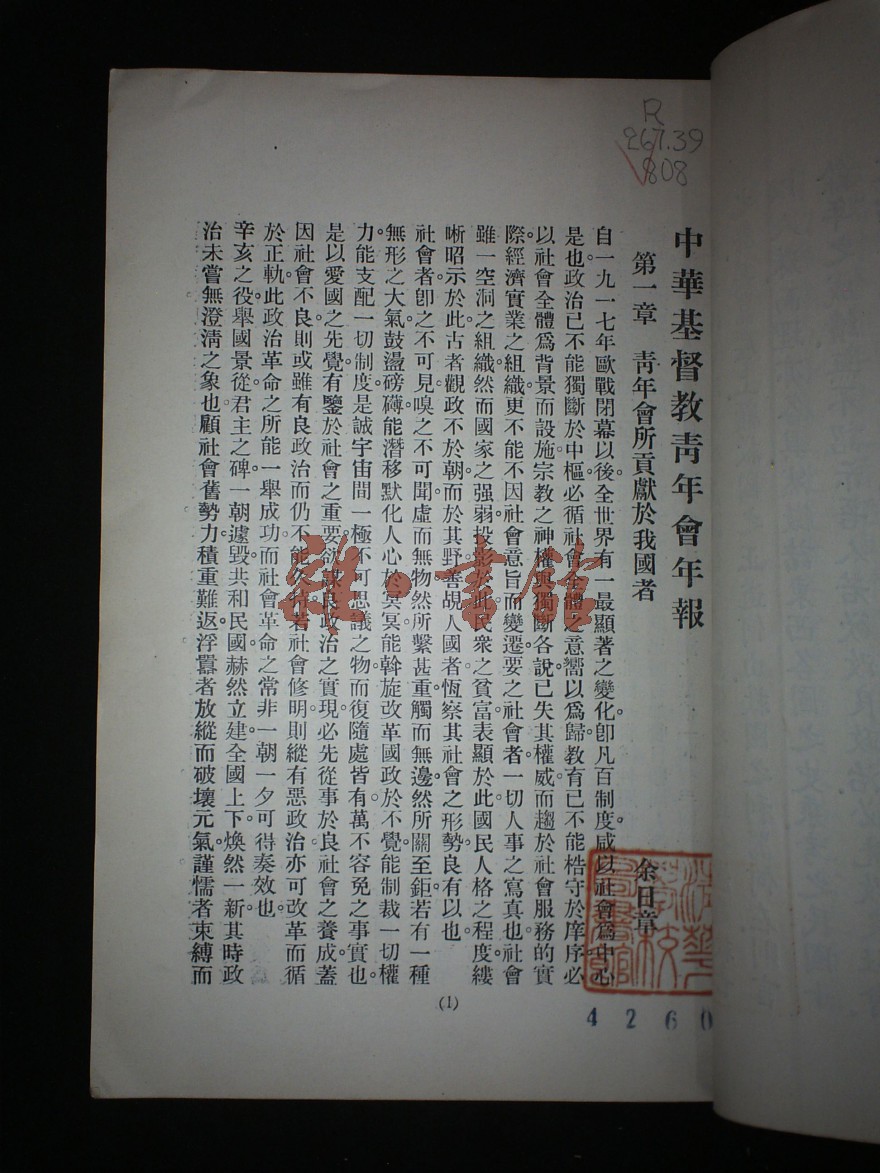 R
267.39
808
中華基督教靑年會年報
第一章　靑年會所貢獻於我國者
余日章
自一九一七年歐戰閉幕以後。全世界有一最顯著之變化。卽凡百制度。咸以社會爲中心
是也。政治已不能獨斷於中樞。必循社會全體之意嚮以爲歸。教育已不能梏守於庠序。必
以社會全體爲背景而設施。宗教之神權與獨斷各說已失其權威。而趨於社會服務的實
際。經濟實業之組織。更不能不因社會意旨而變遷。要之社會者。一切人事之寫真也。社會
雖一空洞之組織。然而國家之强弱。投影於此。民衆之貧富。表顯於此。國民人格之程度。縷
晰昭示於此。古者觀政不於朝而於其野。善覘人國者。恆察其社會之形勢。良有以也。
社會者。卽之不可見。嗅之不可聞。虛而無物。然所繫甚重。觸而無邊。然所關至鉅。若有一種
無形之大氣。鼓盪磅礴。能潛移默化人心於冥冥。能斡旋改革國政於不覺。能制裁一切權
力。能支配一切制度。是誠宇宙間一極不可思議之物。而復隨處皆有。萬不容免之事實也。
是以愛國之先覺。有鑒於社會之重要。欲謀良政治之實現。必先從事於良社會之養成。蓋
因社會不良。則或雖有良政治而仍不能久持。若社會修明。則縱有惡政治亦可改革而循
於正軌。此政治革命之所能一舉成功。而社會革命之常非一朝一夕可得奏效也。
辛亥之役。舉國景從。君主之碑。一朝遽毀。共和民國。赫然立建。全國上下。煥然一新。其時政
治未嘗無澄淸之象也。顧社會舊勢力。積重難返。浮囂者放縱而破壞元氣。謹懦者束縛而
(1)
4260